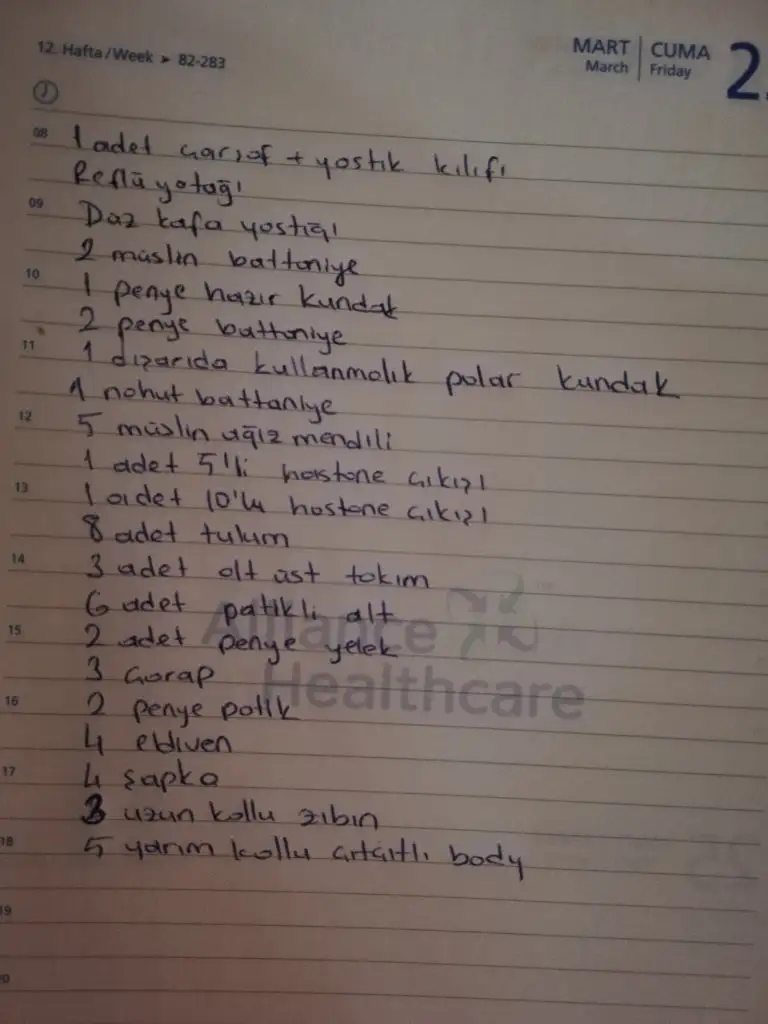 12. Hafta/Week ➤ 82-283
MART CUMA 2
March Friday
08 1 adet çarşaf + yastık kılıfı
Reflü yatağı
09 Düz kafa yastığı
2 müslin battaniye
10 1 penye hazır kundak
2 penye battaniye
11 1 dışarıda kullanmalık polar kundak
1 nohut battaniye
12 5 müslin ağız mendili
1 adet 5'li hastane çıkışı
13 1 adet 10'lu hastane çıkışı
8 adet tulum
14 3 adet alt üst takım
6 adet patikli alt
15 2 adet penye yelek
3 çorap
16 2 penye patik
4 eldiven
17 4 şapka
3 uzun kollu zıbın
18 5 yarım kollu çıtçıtlı body
19
20
Alliance
Healthcare